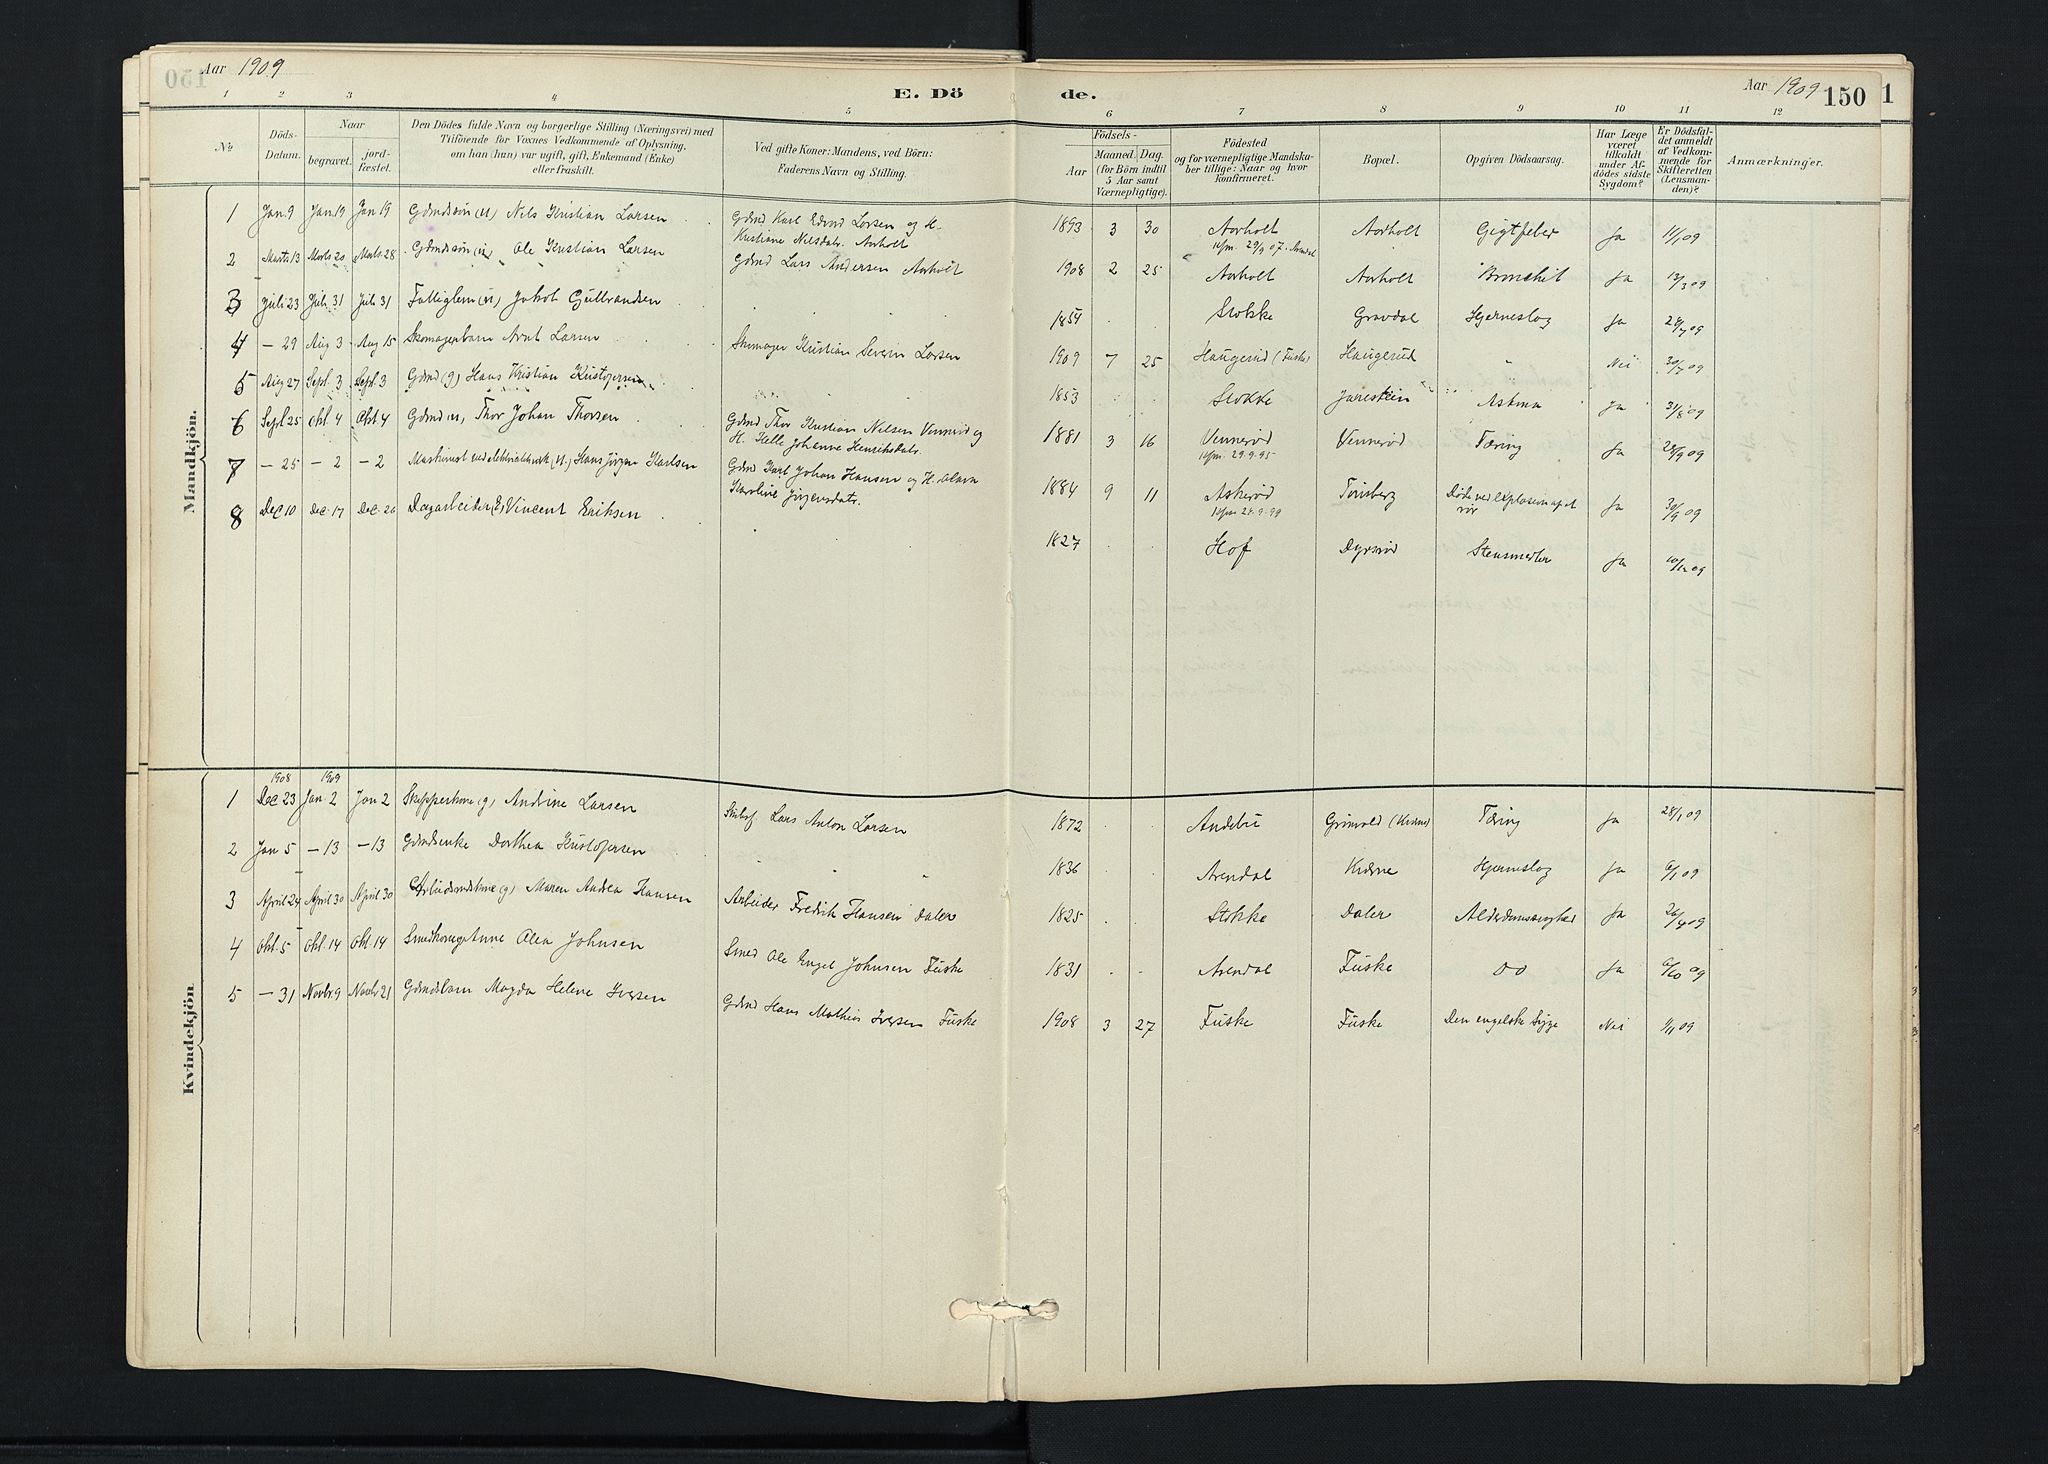 150
Aar 1909
E. Döde.
Aar 1909
150
1
1 2 3 4 5 6 7 8 9 10 11 12
№
Döds-Datum.
Naar
begravet.
jord-fæstet.
Den Dödes fulde Navn og borgerlige Stilling (Næringsvei) med
Tilföiende for Voxnes Vedkommende af Oplysning,
om han (hun) var ugift, gift, Enkemand (Enke)
eller fraskilt.
Ved gifte Koner: Mandens, ved Börn:
Faderens Navn og Stilling.
Födsels-
Aar
Maaned. Dag.
(for Börn indtil
5 Aar samt
Værnepligtige).
Födested
og for værnepligtige Mandska-
ber tillige: Naar og hvor
konfirmeret.
Bopæl.
Opgiven Dödsaarsag.
Har Læge
været
tilkaldt
under Af-
dödes sidste
Sygdom?
Er Dödsfal-
det anmeldt
af Vedkom-
mende for
Skifteretten
(Lensman-
den)?
Anmærkninger.
Mandkjön.
1 Jan 9 Jan 19 Jan 19 Gdmdssøn (U) Nils Kristian Larsen Gdmd Karl Edvard Larsen og H. Kristiane Nilsdatr. Aorholt 1893 3 30 Aorholt 29/9 07. Aorholt Gigtfeber Ja 11/1 09
2 Marts 13 Marts 20 Marts 28 Gdmdssøn (U) Ole Kristian Larsen Gdmd Lars Andersen Aorholt 1908 2 25 Aorholt Aorholt Bronchit Ja 13/3 09
3 Juli 23 Juli 31 Juli 31 Fattiglem (U) Jakob Gulbrandsen 1854 Stokke Gravdal Hjerneslag Ja 28/7 09
4 — 29 Aug 3 Aug 15 Skomagerbarn Arnt Larsen Skomager Kristian Severin Larsen 1909 7 25 Haugerud (Fuske) Haugerud " Nei 30/7 09
5 Aug 27 Sept. 3 Sept. 3 Gdmd (g) Hans Kristian Kristofersen 1853 Stokke Astma Ja 31/8 09
6 Sept 25 Okt. 4 Okt 4 Gdmd (U) Thor Johan Thorsen Gdmd Thor Kristian Nilsen Vennerød og H. Helle Johanne Henriksdatr. 1881 3 16 Vennerød 29.9.95 Vennerød Tæring Ja 28/9 09
7 — 25 — 2 — 2 Maskinist ved (U.) Hans Jørgen Karlsen Gdmd Karl Johan Hansen og H. Karoline Jørgensdatr. 1884 9 11 Askerød 24.9.99 Tønsberg Døde ved explosion af et rør Ja 30/9 09
8 Dec 10 Dec. 17 Dec. 26 Dagarbeider (E) Vincent Eriksen 1827 Hof Dyrsrød Stensmerter Ja 10/12 09
Kvindekjön.
1908 1909
1 Dec 23 Jan. 2 Jan 2 Skipperkone (g) Andrine Larsen Lars Anton Larsen 1872 Andebu Grimvold Tæring Ja 28/1 09
2 Jan 5 — 13 — 13 Gdmdsenke Dorthea Kristofersen 1836 Arendal Kverne Hjerneslag Ja 6/1 09
3 April 24 April 30 April 30 Arbeidsmdskone (g) Maren Andrea Hansen Arbeider Fredrik Hansen Daler 1825 Stokke Daler Alderdomssvaghed Ja 26/4 09
4 Okt. 5 Okt. 14 Okt. 14 Smedkone (g) Anne Olea Johnsen Smed Ole Engel Johnsen Fuske 1831 Arendal Fuske Do Ja 6/10 09
5 — 31 Novbr. 9 Novbr 21 Gdmdsbarn Magda Helene Iversen Gdmd Hans Mathias Iversen Fuske 1908 3 27 Fuske Fuske Den engelske Syge Nei 1/11 09